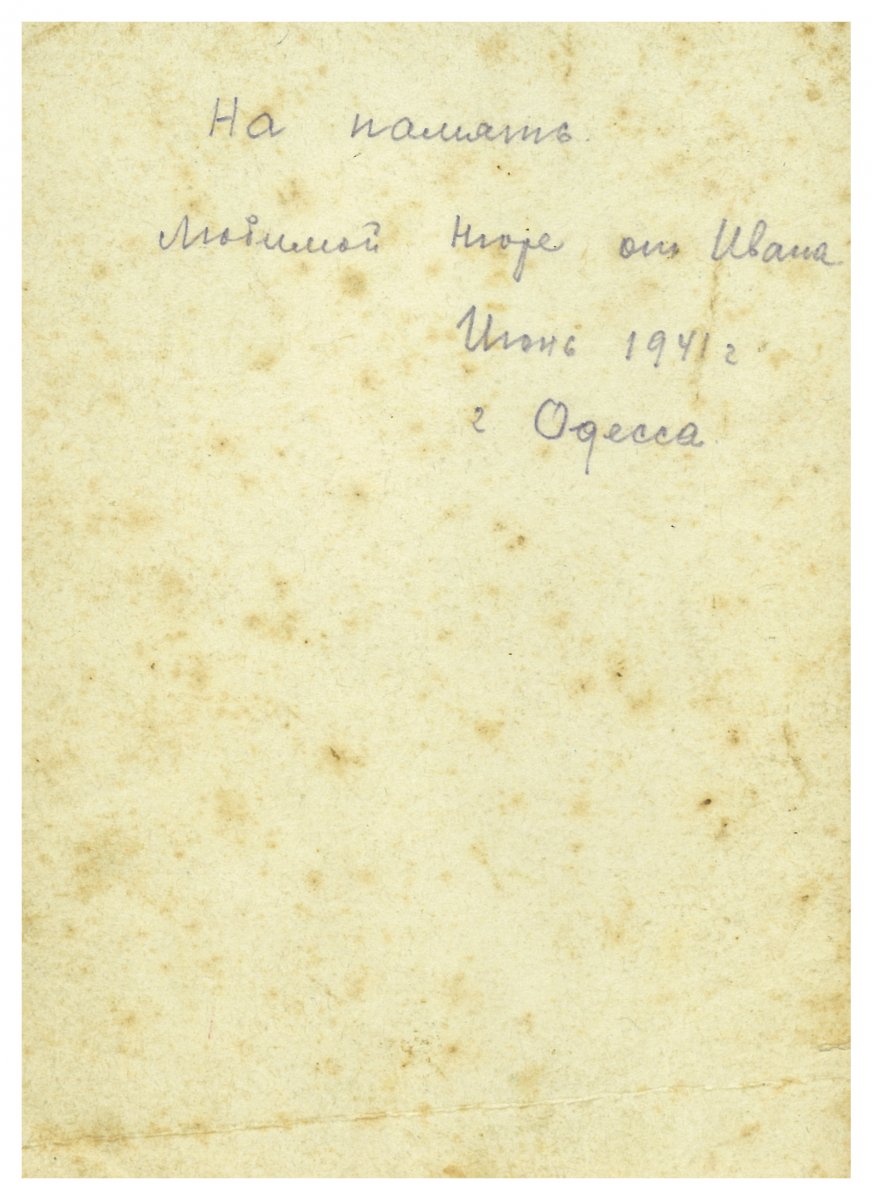 На память
Любимой Нюре от Ивана
Июнь 1941 г
г Одесса